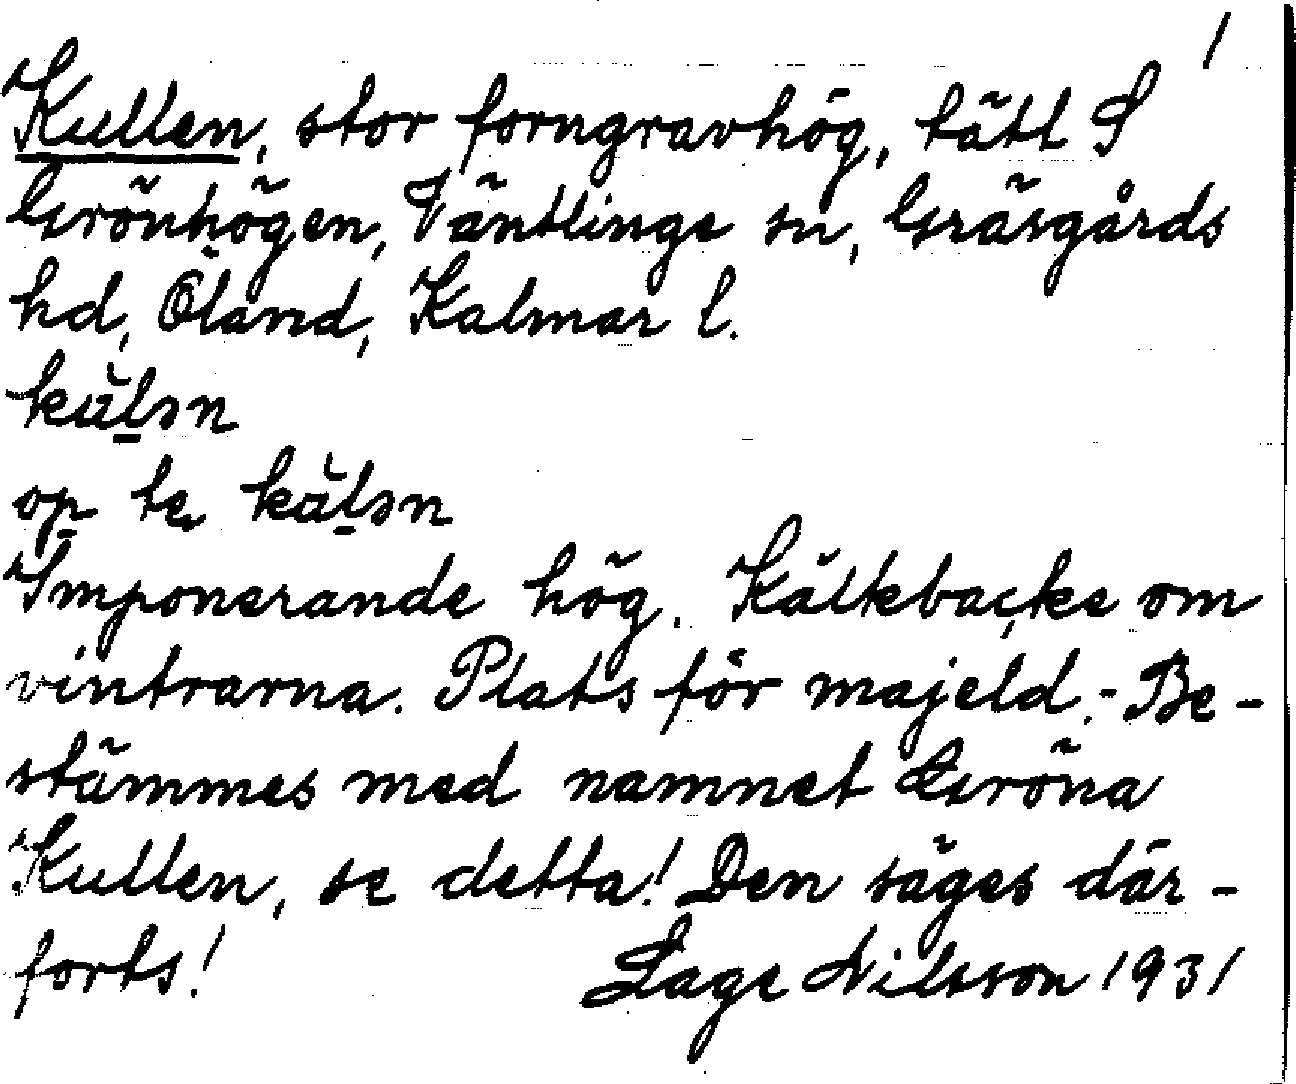 1
Kullen, stor forngravhög, tätt S
Grönhögen, Väntlinge sn, Gräsgårds
hd, Öland, Kalmar l.
Imponerande hög. Kälkebacke om
vintrarna. Plats för majeld. - Be-
stämmes med namnet Gröna
Kullen, se detta! Den säges där-
forts! Lage Nilsson 1931